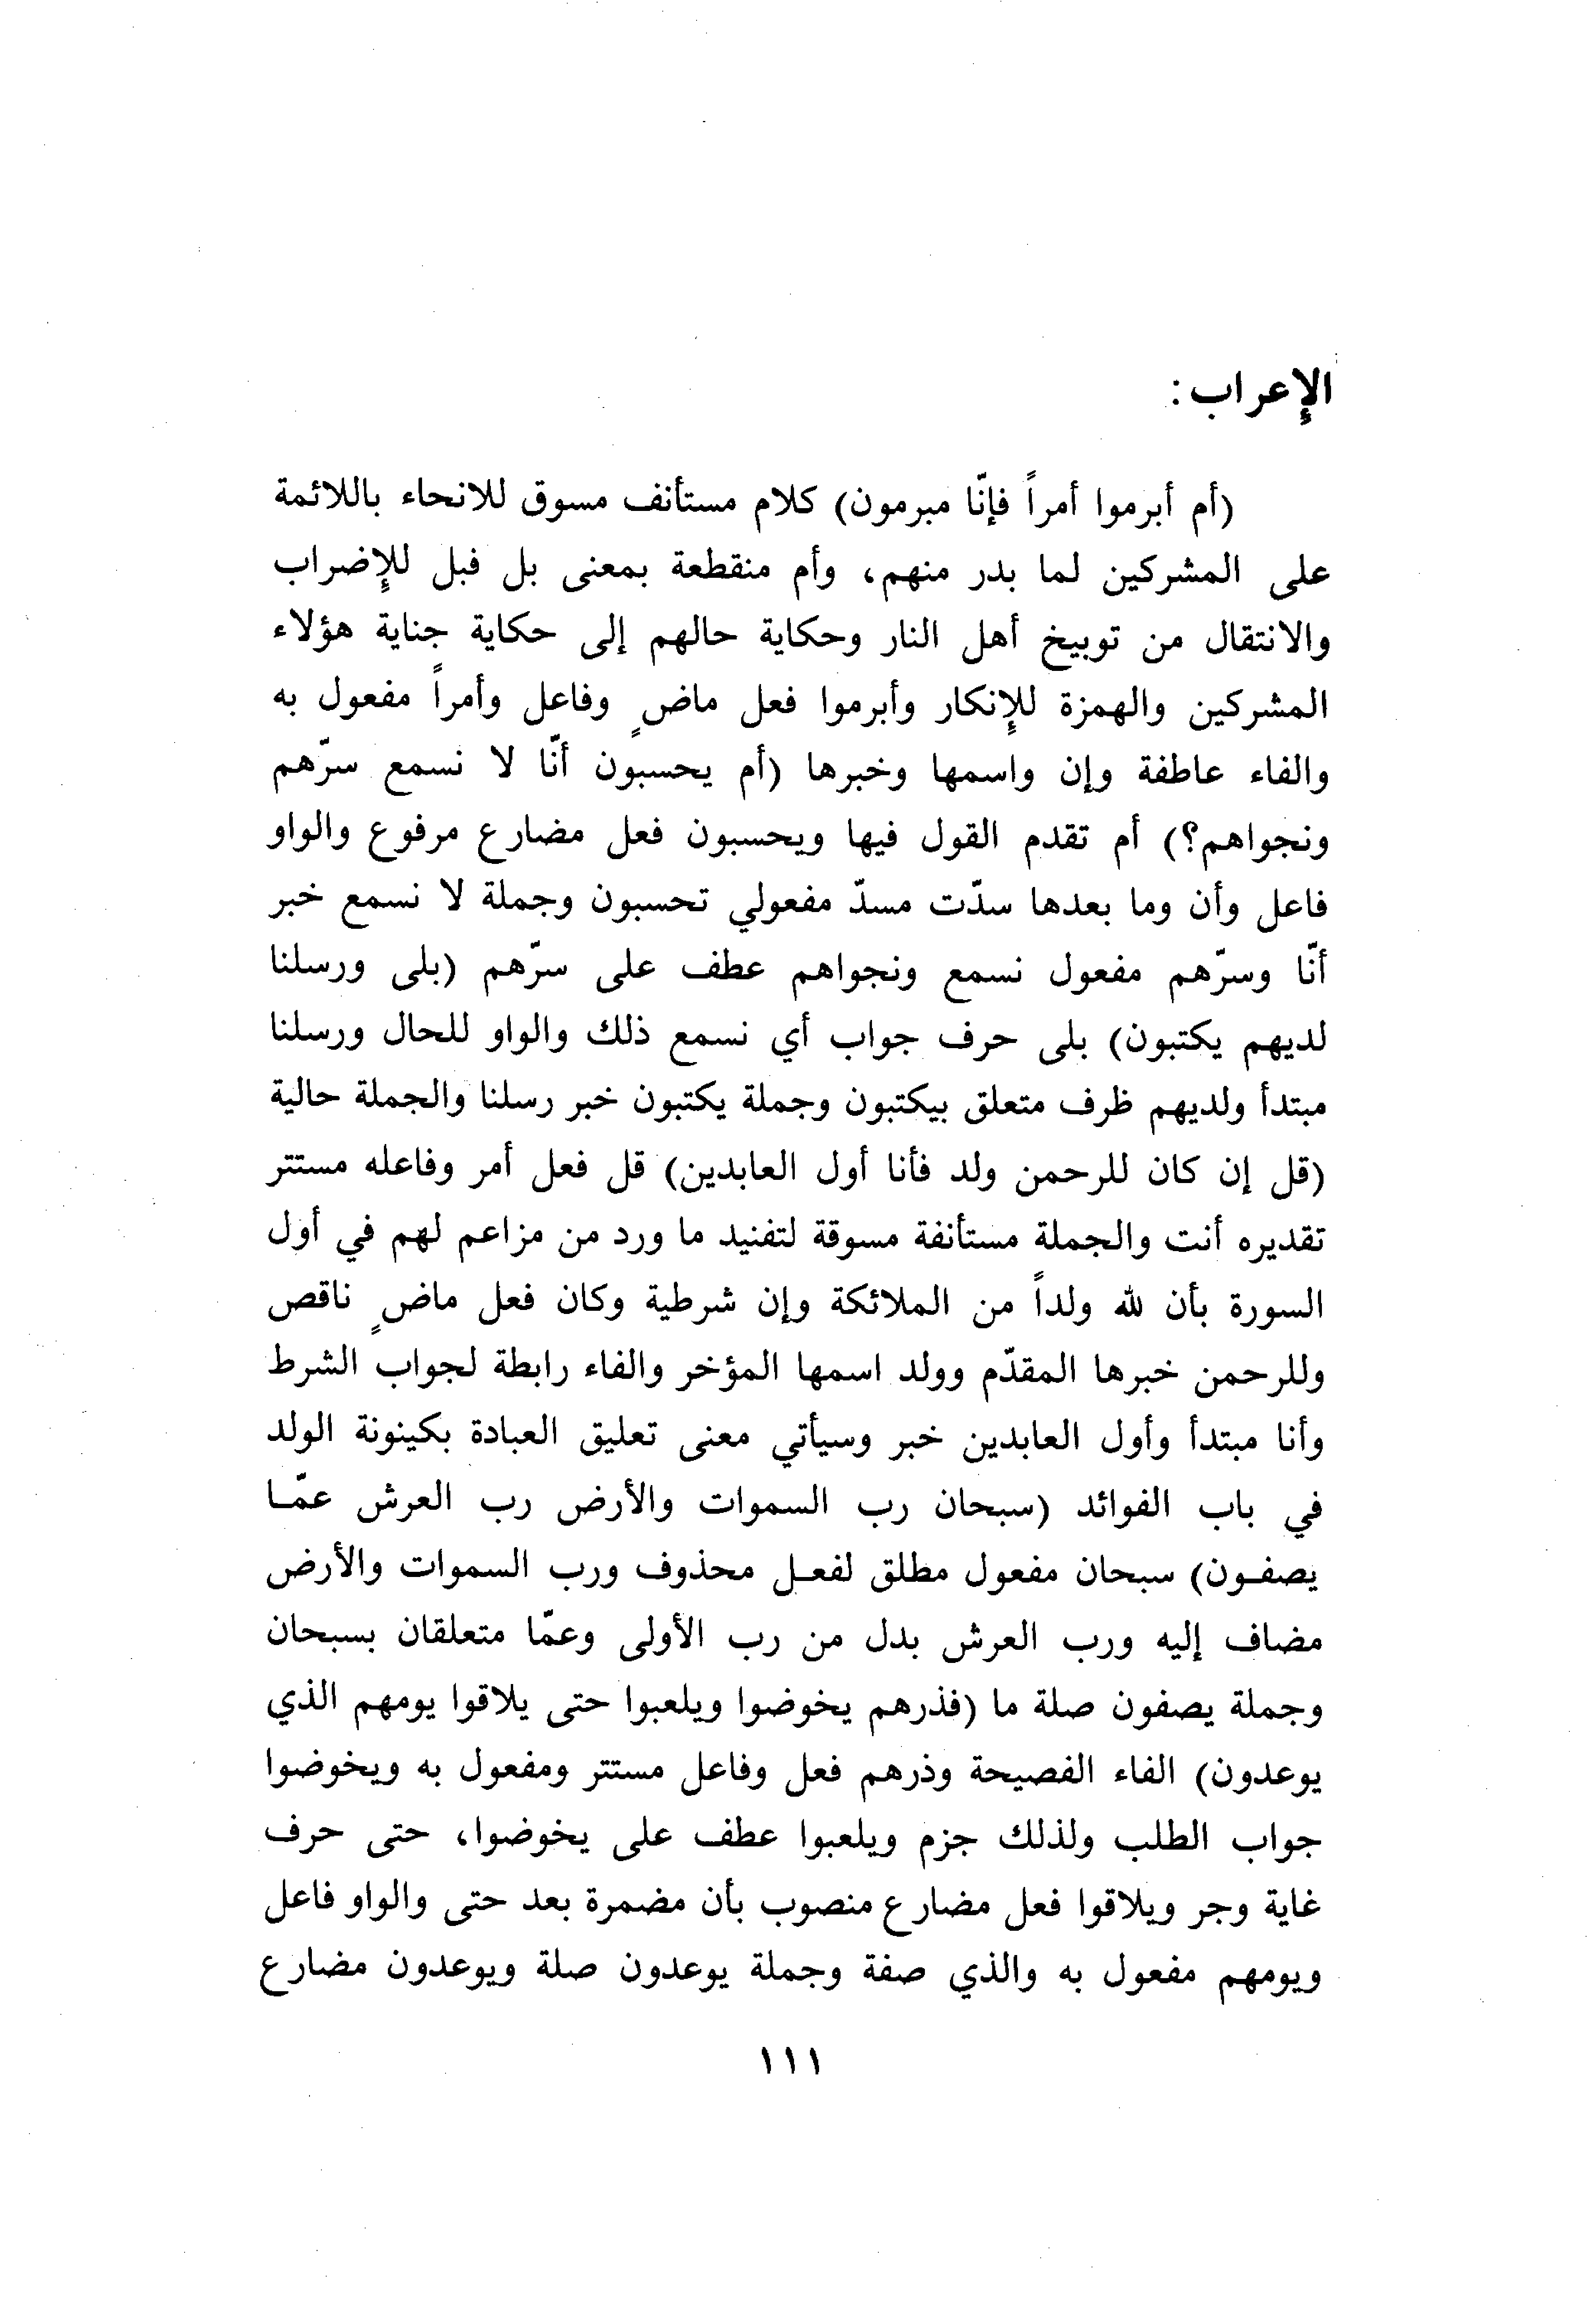 الإعراب:
(أم أبرموا أمراً فإنّا مبرمون) كلام مستأنف مسوق للانحاء باللائمة
على المشركين لما بدر منهم، وأم منقطعة بمعنى بل فبل للإضراب
والانتقال من توبيخ أهل النار وحكاية حالهم إلى حكاية جناية هؤلاء
المشركين والهمزة للإنكار وأبرموا فعل ماضٍ وفاعل وأمراً مفعول به
والفاء عاطفة وإن واسمها وخبرها (أم يحسبون أنّا لا نسمع سرّهم
ونجواهم؟) أم تقدم القول فيها ويحسبون فعل مضارع مرفوع والواو
فاعل وأن وما بعدها سدّت مسدّ مفعولي تحسبون وجملة لا نسمع خبر
أنّا وسرّهم مفعول نسمع ونجواهم عطف على سرّهم (بلى ورسلنا
لديهم يكتبون) بلى حرف جواب أي نسمع ذلك والواو للحال ورسلنا
مبتدأ ولديهم ظرف متعلق بيكتبون وجملة يكتبون خبر رسلنا والجملة حالية
(قل إن كان للرحمن ولد فأنا أول العابدين) قل فعل أمر وفاعله مستتر
تقديره أنت والجملة مستأنفة مسوقة لتفنيد ما ورد من مزاعم لهم في أول
السورة بأن لله ولداً من الملائكة وإن شرطية وكان فعل ماضٍ ناقص
وللرحمن خبرها المقدّم وولد اسمها المؤخر والفاء رابطة لجواب الشرط
وأنا مبتدأ وأول العابدين خبر وسيأتي معنى تعليق العبادة بكينونة الولد
في باب الفوائد (سبحان رب السموات والأرض رب العرش عمّـا
يصفـون) سبحان مفعول مطلق لفعـل محذوف ورب السموات والأرض
مضاف إليه ورب العرش بدل من رب الأولى وعمّا متعلقان بسبحان
وجملة يصفون صلة ما (فذرهم يخوضوا ويلعبوا حتى يلاقوا يومهم الذي
يوعدون) الفاء الفصيحة وذرهم فعل وفاعل مستتر ومفعول به ويخوضوا
جواب الطلب ولذلك جزم ويلعبوا عطف على يخوضوا، حتى حرف
غاية وجر ويلاقوا فعل مضارع منصوب بأن مضمرة بعد حتى والواو فاعل
ويومهم مفعول به والذي صفة وجملة يوعدون صلة ويوعدون مضارع
١١١